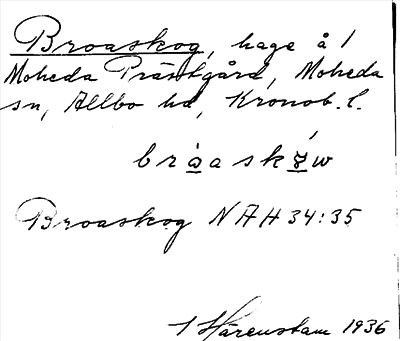 Broaskog, hage å 1
Moheda Prästgård, Moheda
sn, Allbo hd, Kronob. l.
bråaskɤw
Broaskog NAH 34:35
1 Härenstam 1936